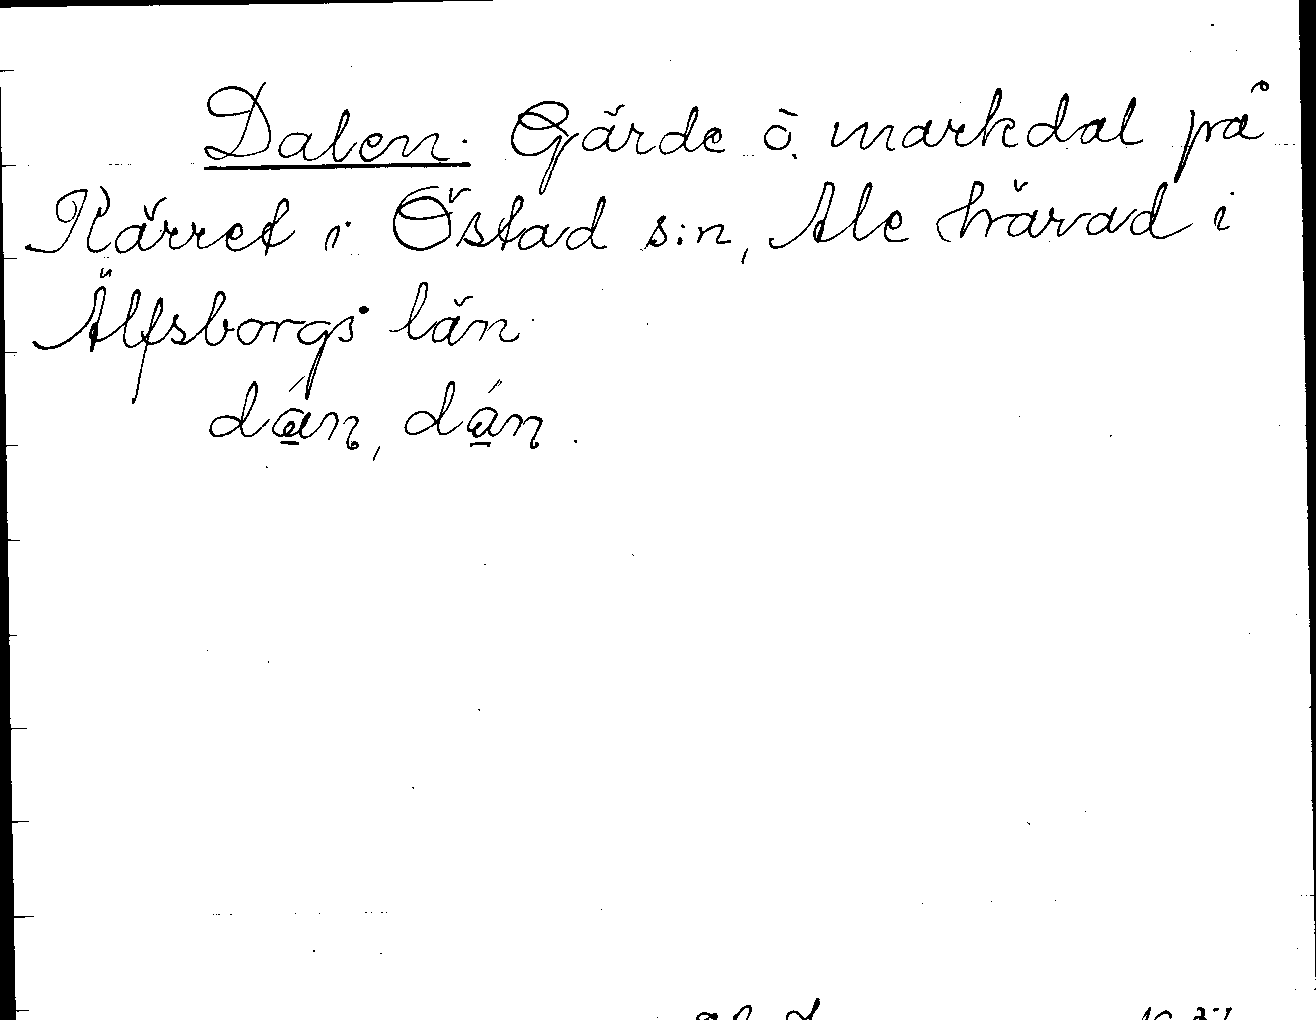 Dalen. Gärde o. markdal på
Kärret i Östad s:n, Ale härad i
Älfsborgs län
dán, dán.